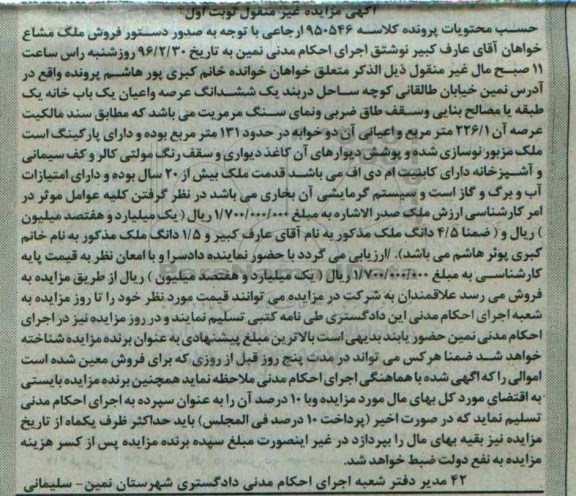 آگهی مزایده غیر منقول نوبت اول
حسب محتویات پرونده کلاسه ۹۵۰۵۴۶ ارجاعی با توجه به صدور دستور فروش ملک مشاع
خواهان آقای عارف کبیر نوشتق اجرای احکام مدنی نمین به تاریخ ۹۶/۲/۳۰ روزشنبه راس ساعت
۱۱ صبح مال غیر منقول ذیل الذکر متعلق خواهان خوانده خانم کبری پور هاشم پرونده واقع در
آدرس نمین خیابان طالقانی کوچه ساحل دربند یک ششدانگ عرصه واعیان یک باب خانه یک
طبقه یا مصالح بنایی وسقف طاق ضربی ونمای سنگ مرمریت می باشد که مطابق سند مالکیت
عرصه آن ۲۲۶/۱ متر مربع و اعیانی آن دو خوابه در حدود ۱۳۱ متر مربع بوده و دارای پارکینگ است
ملک مزبور نوسازی شده و پوشش دیوارهای آن کاغذ دیواری و سقف رنگ مولتی کالر و کف سیمانی
و آشپزخانه دارای کابینت ام دی اف می باشد قدمت ملک بیش از ۲۰ سال بوده و دارای امتیازات
آب و برگ و گاز است و سیستم گرمایشی آن بخاری می باشد در نظر گرفتن کلیه عوامل موثر در
امر کارشناسی ارزش ملک صدر الاشاره به مبلغ ۱/۷۰۰/۰۰۰/۰۰۰ ریال ( یک میلیارد و هفتصد میلیون
) ریال و ( ضمنا ۴/۵ دانگ ملک مذکور به نام آقای عارف کبیر و ۱/۵ دانگ ملک مذکور به نام خانم
کبری پوئر هاشم می باشد). /ارزیابی می گردد با حضور نماینده دادسرا و با امعان نظر به قیمت پایه
کارشناسی به مبلغ ۱/۷۰۰/۰۰۰/۰۰۰ ریال ( یک میلیارد و هفتصد میلیون ) ریال از طریق مزایده به
فروش می رسد علاقمندان به شرکت در مزایده می توانند قیمت مورد نظر خود را تا روز مزایده به
شعبه اجرای احکام مدنی این دادگستری طی نامه کتبی تسلیم نمایند و در روز مزایده نیز در اجرای
احکام مدنی نمین حضور یابند بدیهی است بالاترین مبلغ پیشنهادی به عنوان برنده مزایده شناخته
خواهد شد ضمنا هرکس می تواند در مدت پنج روز قبل از روزی که برای فروش معین شده است
اموالی را که اگهی شده با هماهنگی اجرای احکام مدنی ملاحظه نماید همچنین برنده مزایده بایستی
به اقتضای مورد کل بهای مال مورد مزایده ویا ۱۰ درصد آن را به عنوان سپرده به اجرای احکام مدنی
تسلیم نماید که در صورت اخیر (پرداخت ۱۰ درصد فی المجلس) باید حداکثر ظرف یکماه از تاریخ
مزایده نیز بقیه بهای مال را بپردازد در غیر اینصورت مبلغ سپده برنده مزایده پس از کسر هزینه
مزایده به نفع دولت ضبط خواهد شد.
۴۲ مدیر دفتر شعبه اجرای احکام مدنی دادگستری شهرستان نمین- سلیمانی